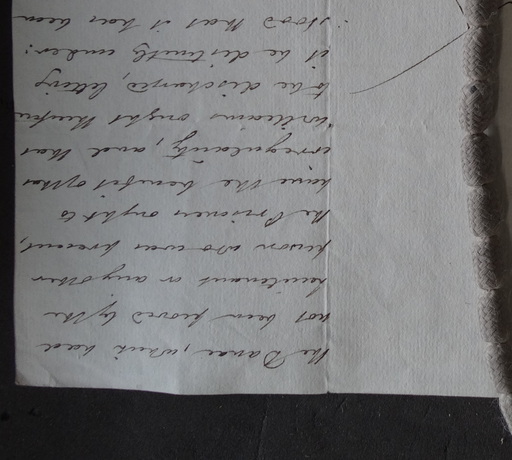 the Dance, which had
not been proved by the
Lieutenant or any other
person who was present,
the Prisoner ought to
have the benefit of that
irregularity, and that
Williams ought therefore
to be discharged, letting
it be distinctly under:
:stood that it has been